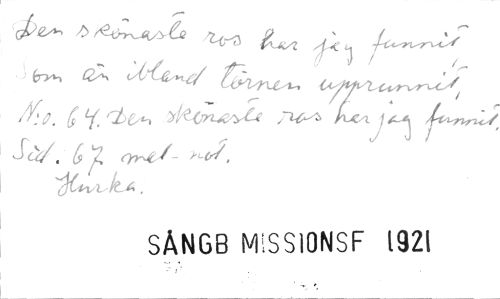 Den skönaste ros har jag funnit,
Som än ibland törnen upprunnit,
N:o. 64. Den skönaste ros har jag funnit.
Sid. 67. mel-not.
Hurka.
SÅNGB MISSIONSF 1921